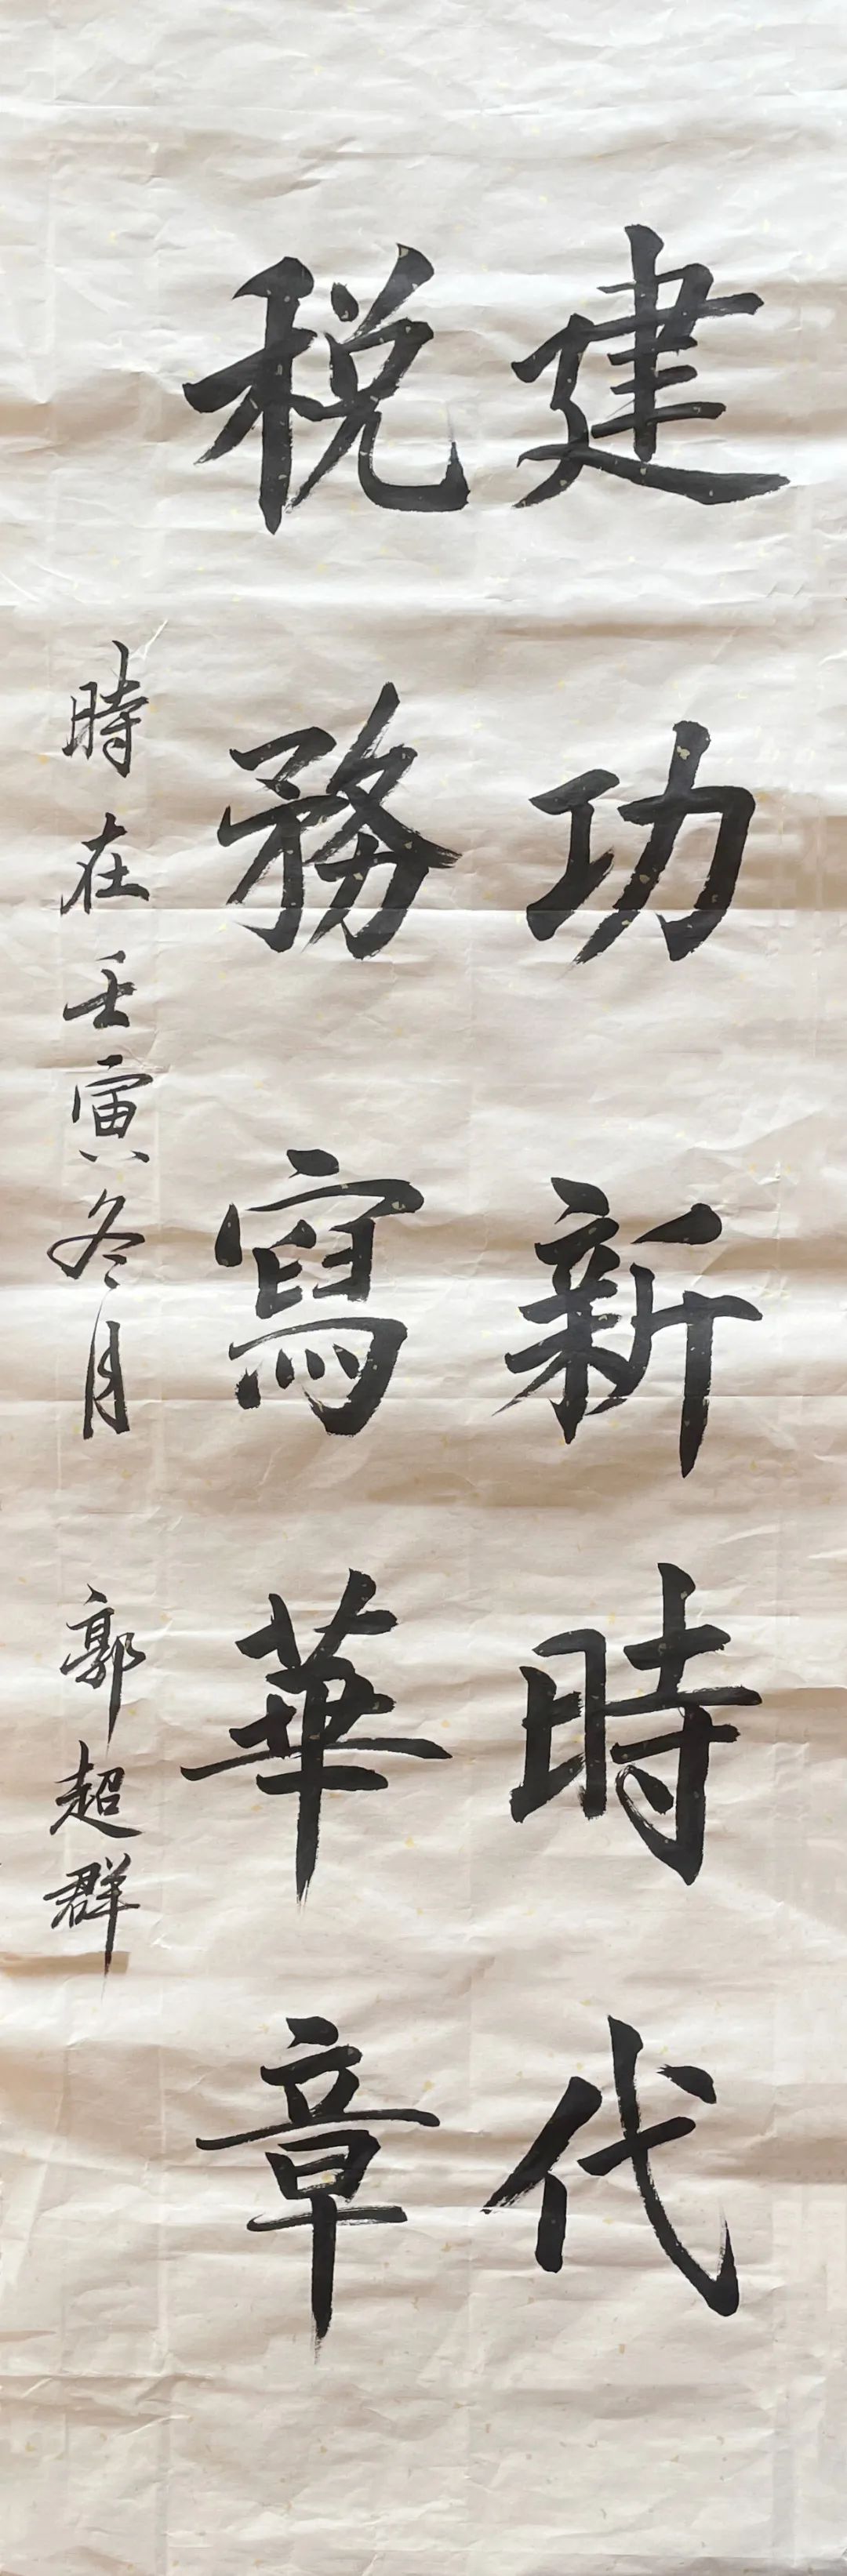 建功新時代
税務寫華章
時在壬寅冬月 郭超群